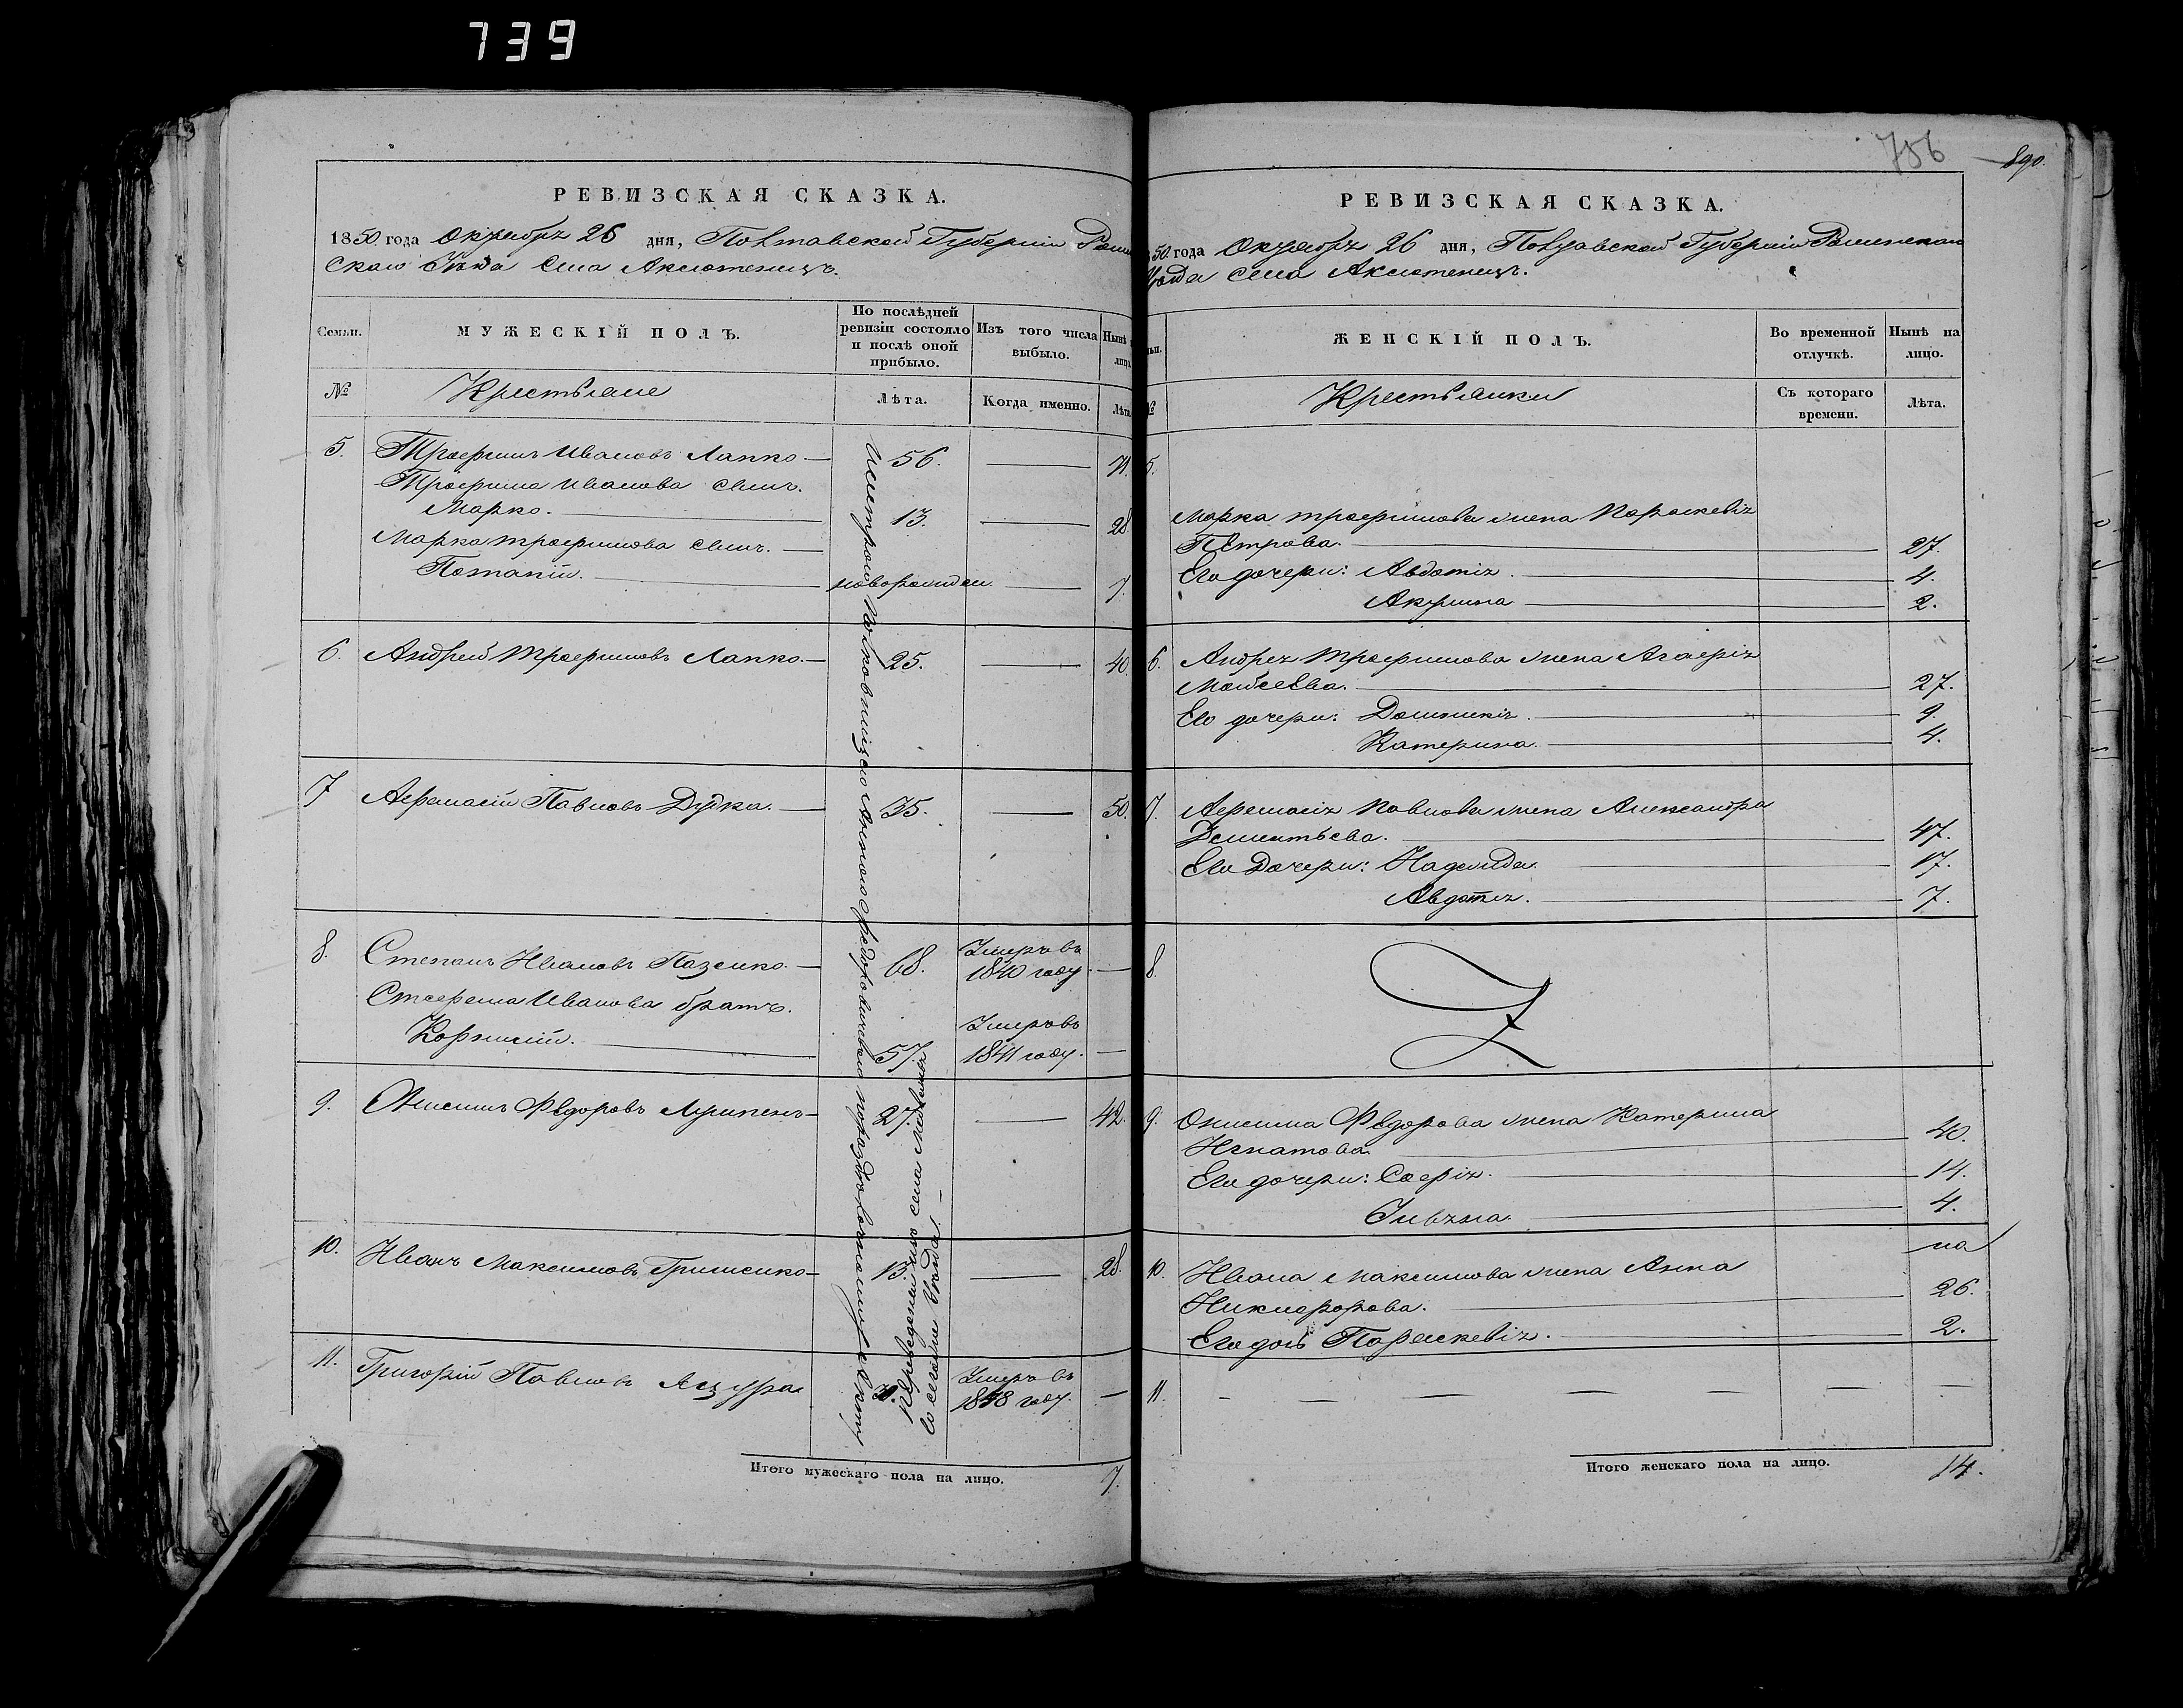 739
РЕВИЗСКАЯ СКАЗКА.
1850 года Октября 26 дня, Полтавской Губерніи Ромен
скаго Уѣзда Села Аксютенецъ.
Семьи. МУЖЕСКІЙ ПОЛЪ. По послѣдней ревизіи состояло и послѣ оной прибыло. Изъ того числа выбыло. Нынѣ лицо
№ Крестьяне Лѣта. Когда именно. Лѣта
5. Трофимъ Ивановъ Лапко 56. 71.
Трофима Иванова сынъ.
Марко. 13. 28
Марка трофимова сынъ.
Потапій. новорожден. 7.
6. Андрей Трофимовъ Лапко. 25. 40.
7 Афанасій Павловъ Дудка. 35. 50.
8. Степанъ Ивановъ Пазенко. 68. Умеръ въ
1840 году.
Стефана Иванова братъ.
Корнилій. 57. Умеръ въ
1841 году.
9. Онисимъ Федоровъ 27. 42.
10. Иванъ Максимовъ Гришенко 13. 28.
11. Григорій Павловъ Умеръ въ
1848 году.
Полковницею Анною Федоровичевою по раздѣльному акту
Переведены изъ села
сего же уѣзда.
Итого мужескаго пола на лицо. 7.
756 890.
РЕВИЗСКАЯ СКАЗКА.
50 года Октября 26 дня, Полтавской Губерніи Роменскаго
Уѣзда Села Аксютенецъ.
ьи. ЖЕНСКІЙ ПОЛЪ. Во временной отлучкѣ. Нынѣ на лицо.
№ Крестьянки Съ котораго времени. Лѣта.
5.
Марка трофимова жена Параскевія
Петрова. 27.
Его дочери: Авдотія. 4.
Акулина 2.
6. Андрея Трофимова жена Агафія
Моисеева. 27.
Его дочери: Домникія. 9.
Катерина. 4.
7. Афанасія Павлова жена Александра
Дементьева. 47.
Его Дочери: Надежда. 17.
Авдотія. 7.
8.
9. Онисима Федорова жена Катерина
Игнатова 40.
Его дочери: Софія. 14.
Ульяна. 4.
на
10. Ивана Максимова жена Анна
Никифорова. 26.
Его дочь Параскевія. 2.
11.
Итого женскаго пола на лицо. 14.